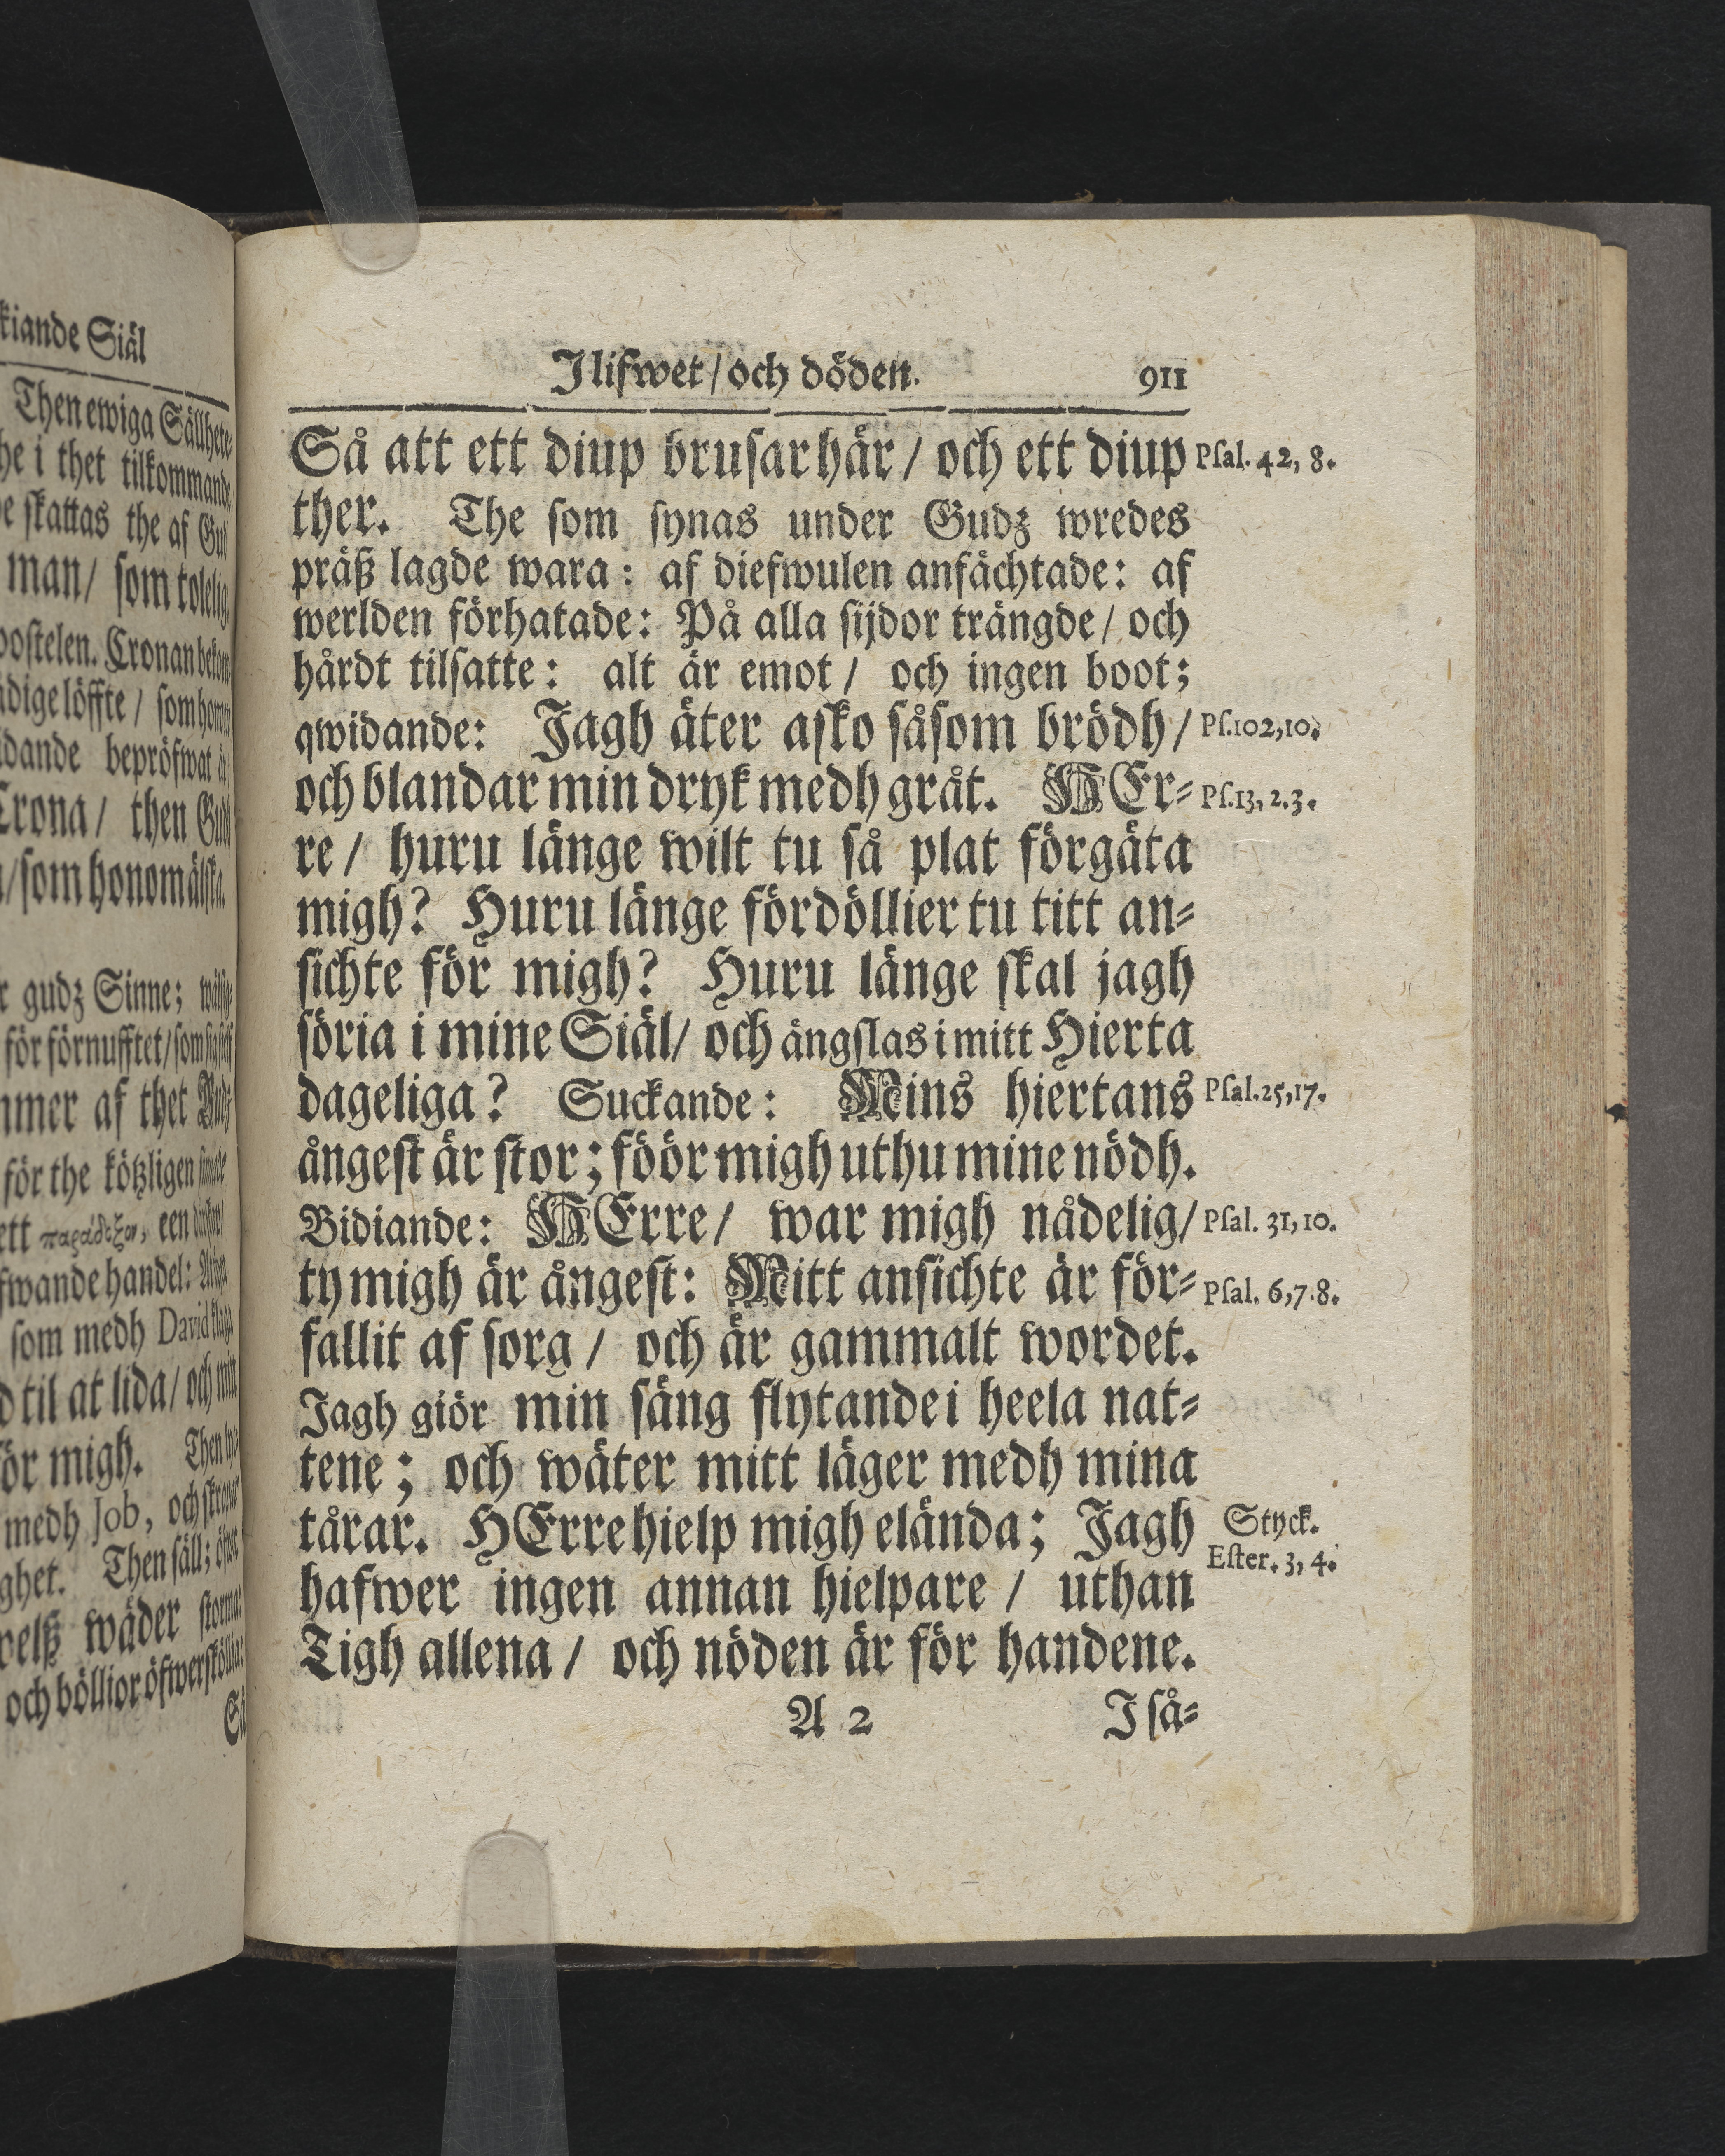 kiande Siäl
Then ewiga Sällhete
he i thet tilkommande
e skattas the af Gud
man/ som tolelig
postelen. Cronan bekom
digelöffte / som honom
dande bepröfwat är/
Crona/ then Gud
/som honom älska.
r gudz Sinne; wälsig
för förnufftet/som
mmer af thet Gudz
för the kötzligen sinnade
ett παράδοξον, een
fwande handel:
som medh David klaga
d til at lida/ och min
ör migh. Then
medh Job, och
ghet. Then säll; öfwer
welß wäder storma:
och böllior öfwerskölia:
Så
I lifwet/och döden. 911
Så att ett diup brusar här / och ett diup Psal. 42, 8.
ther. The som synas under Gudz wredes
präß lagde wara: af diefwulen anfächtade: af
werlden förhatade: På alla sijdor trängde/ och
hårdt tilsatte: alt är emot / och ingen boot;
qwidande: Jagh äter asko såsom brödh/ Ps.102,10.
och blandar min dryk medh gråt. HEr- Ps.13, 2.3.
re / huru länge wilt tu så plat förgäta
migh? Huru länge fördöllier tu titt an-
sichte för migh? Huru länge skal jagh
söria i mine Siäl/ och ängslas i mitt Hierta
dageliga? Suckande: Mins hiertans Psal.25,17.
ångest är stor; föör migh uthu mine nödh.
Bidiande: HErre/ war migh nådelig/ Psal. 31, 10.
ty migh är ångest: Mitt ansichte är för- Psal. 6,7.8.
fallit af sorg / och är gammalt wordet.
Jagh giör min säng flytande i heela nat-
tene; och wäter mitt läger medh mina
tårar. HErre hielp migh elända; Jagh Styck.
hafwer ingen annan hielpare / uthan Ester. 3, 4.
Tigh allena / och nöden är för handene.
A 2 I så-